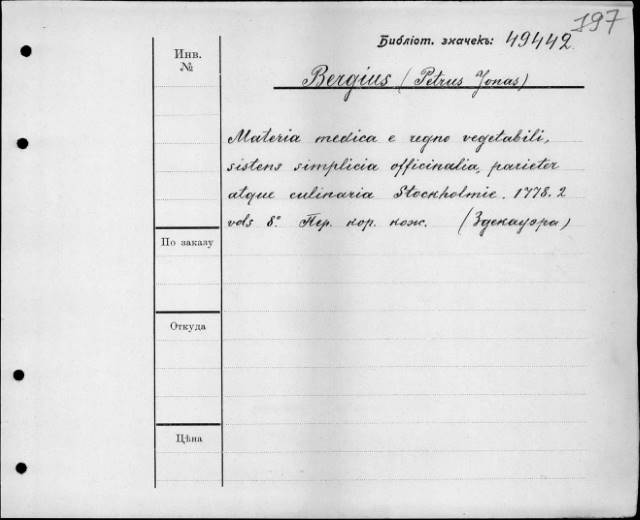 197
Библіот. значекъ: 49442
Инв.
№
Bergius (Petrus Jonas)
Materia medica e regno vegetabili,
sistens simplicia officinalia, parieter
atque culinaria Stockholmie. 1778. 2
vols 8º Пер. кор. кож. (Здекауэра)
По заказу
Откуда
Цѣна